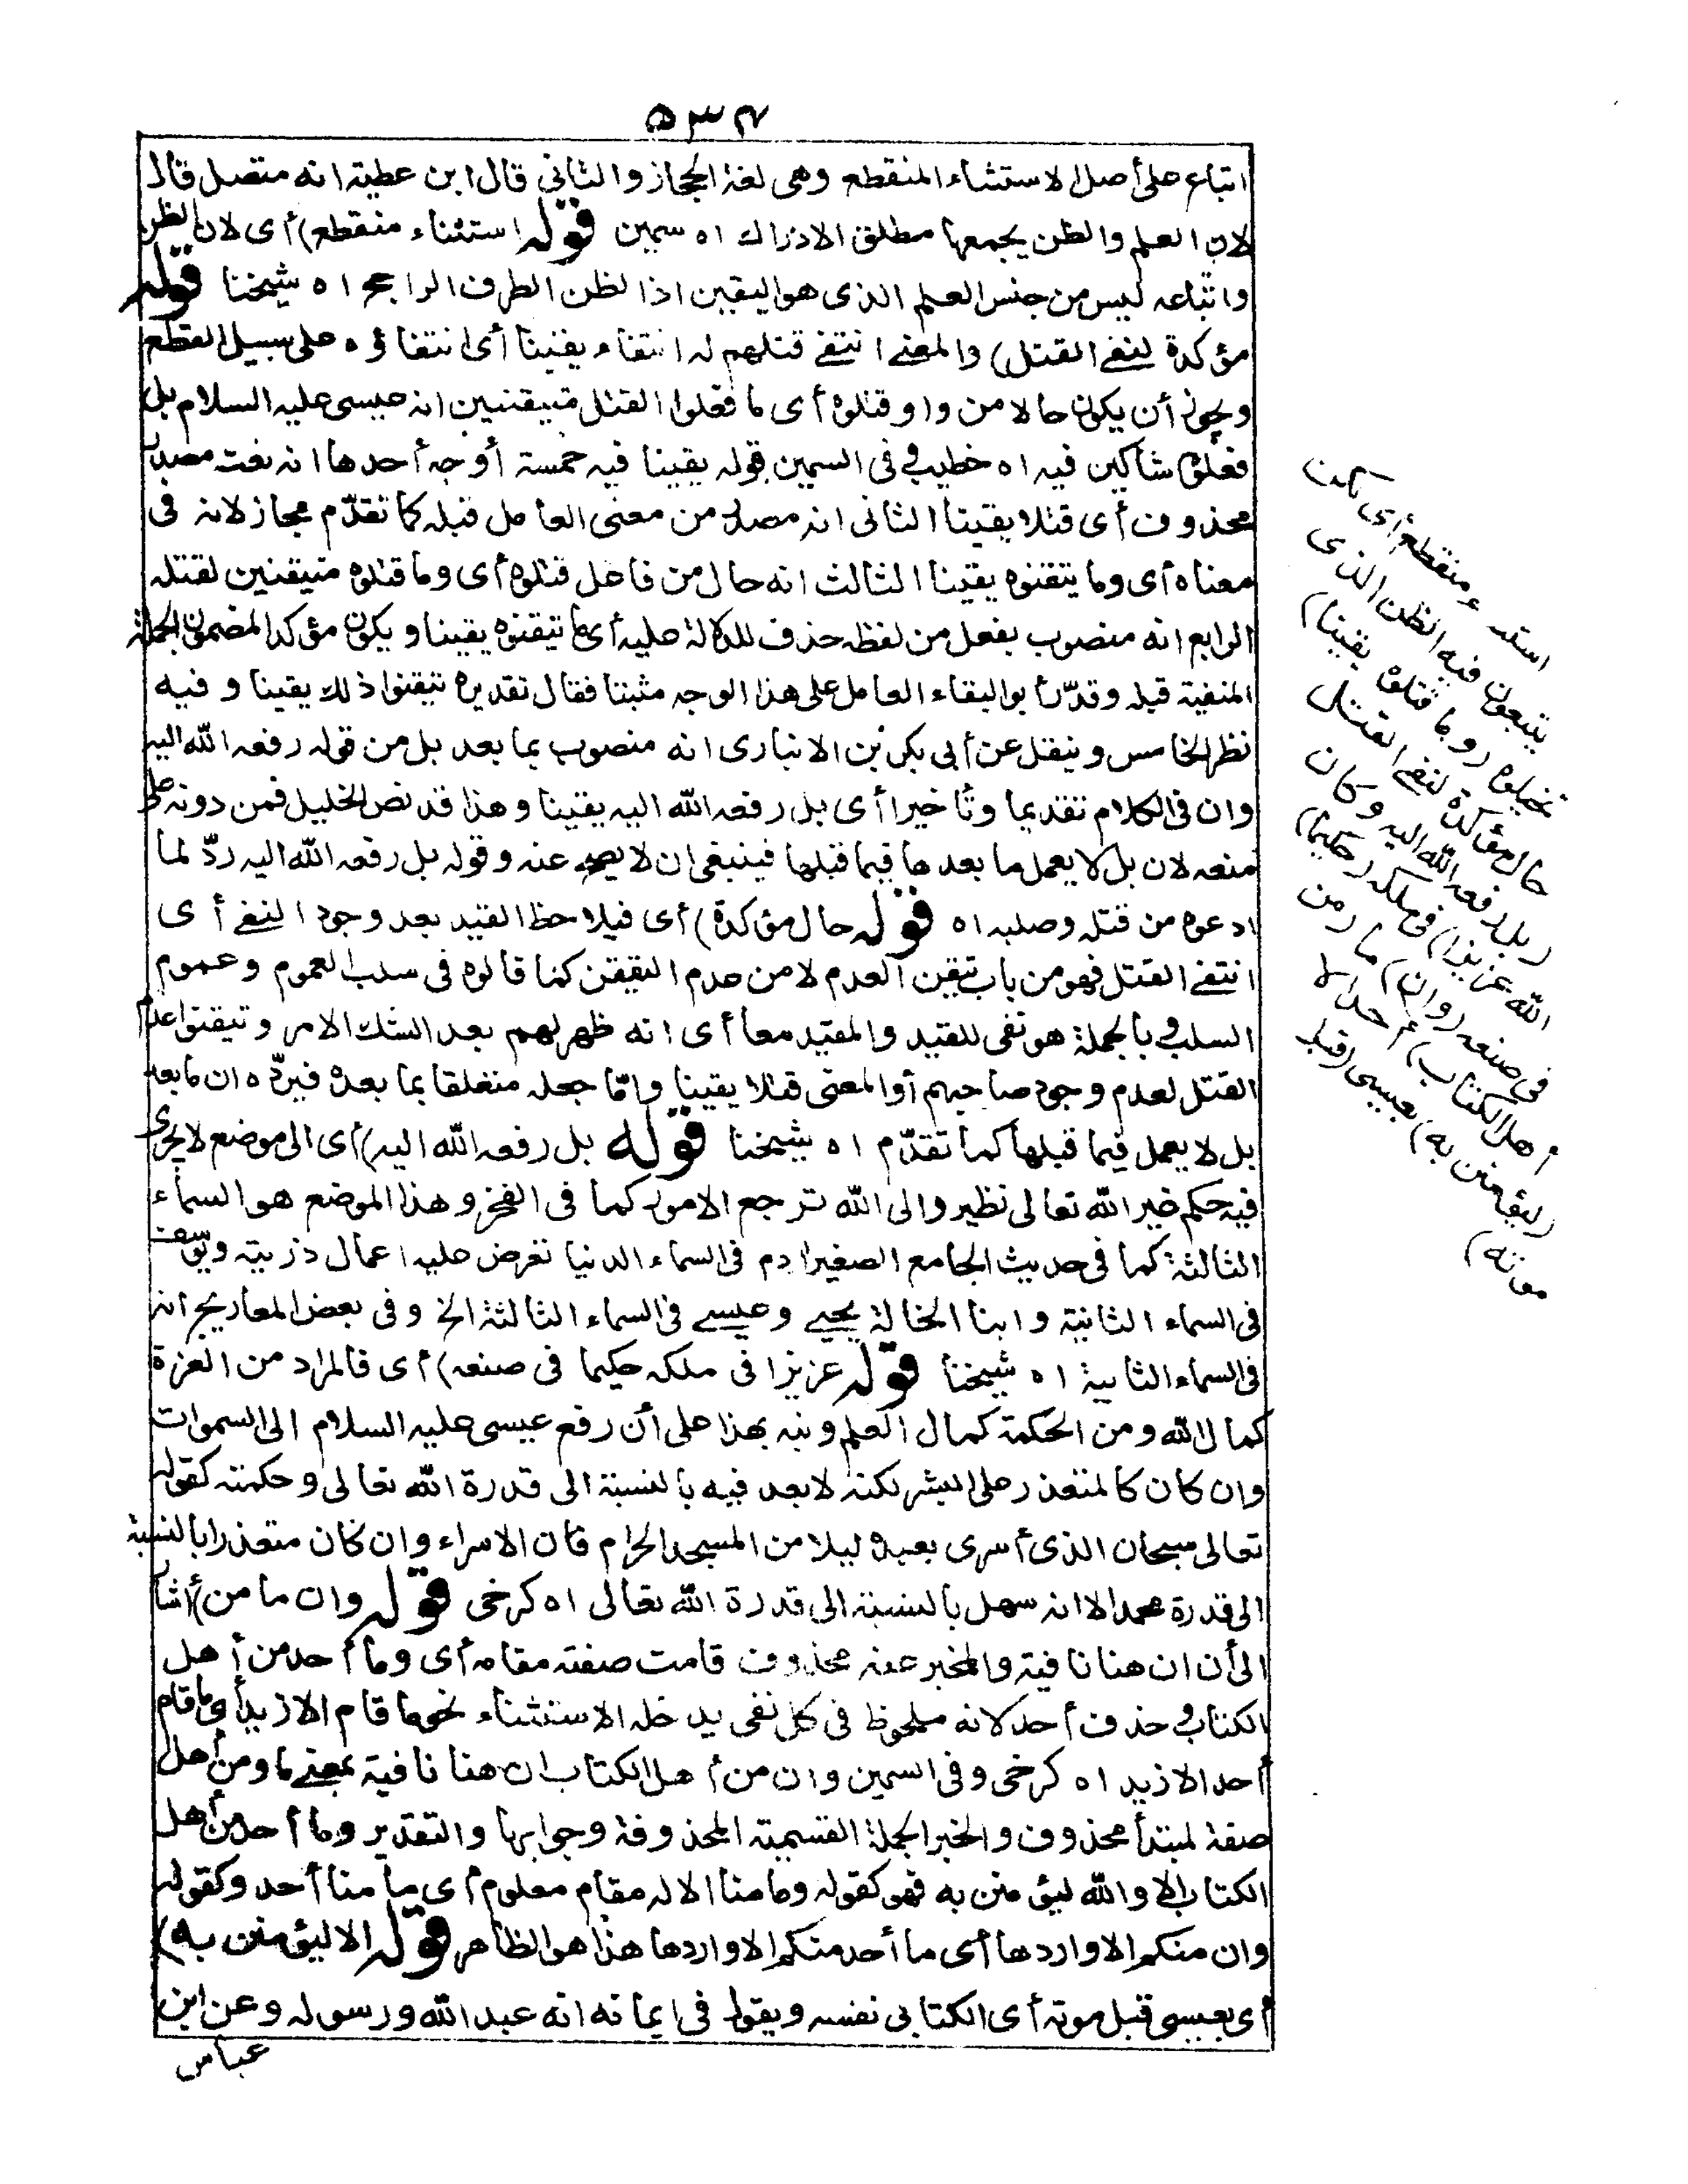 ٥٣٤
اتباع على أصل الاستثناء المنقطع وهى لغة الحجاز والثانى قال ابن عطية انه متصل قال
لان العلم والظن يجمعهما مطلق الادراك اه سمين قوله استثناء منقطع) أى لان الظن
واتباعه ليس من جنس العلم الذى هو اليقين اذ الظن الطرف الراجح اه شيخنا قوله
مؤكدة لنفى القتل) والمعنى انتفى قتلهم له انتفاء يقينا أى انتفاؤه على سبيل القطع
ويجوز أن يكون حالا من واو قتلوه أى ما فعلوا القتل متيقنين انه عيسى عليه السلام بل
فعلوه شاكين فيه اه خطيب وفى السمين قوله يقينا فيه خمسة أوجه أحدها انه نعت مصدر
محذوف أى قتلا يقينا الثانى انه مصدر من معنى العامل قبله كما تقدّم مجاز لانه فى
معناه أى وما يتقنوه يقينا الثالث انه حال من فاعل قتلوه أى وما قتلوه متيقنين لقتله
الرابع انه منصوب بفعل من لفظه حذف للدلالة عليه أى ما تيقنوه يقينا ويكون مؤكدا لمضمون الجملة
المنفية قبله وقدّر أبو البقاء العامل على هذا الوجه مثبتا فقال تقديره تيقنوا ذلك يقينا وفيه
نظر الخامس وينقل عن أبى بكر بن الانبارى انه منصوب بما بعد بل من قوله رفعه الله اليه
وان فى الكلام تقديما وتأخيرا أى بل رفعه الله اليه يقينا وهذا قد نص الخليل فمن دونه على
منعه لان بل لا يعمل ما بعدها فيما قبلها فينبغى ان لا يصح عنه وقوله بل رفعه الله اليه ردّ لما
ادعوه من قتله وصلبه اه قوله حال مؤكدة) أى فيلاحظ القيد بعد وجود النفى أى
انتفى القتل فهو من باب تيقن العدم لا من عدم التيقن كما قالوه فى سلب العموم وعموم
السلب وبالجملة هو نفى للقيد والمقيد معا أى انه ظهر لهم بعد الشك الامر وتيقنوا عدم
القتل لعدم وجود صاحبهم أو المعنى قتلا يقينا وامّا جعله متعلقا بما بعده فيردّه ان ما بعد
بل لا يعمل فيما قبلها كما تقدّم اه شيخنا قوله بل رفعه الله اليه) أى الى موضع لا يجرى
فيه حكم غير الله تعالى نظير والى الله ترجع الامور كما فى الفخر وهذا الموضع هو السماء
الثالثة كما فى حديث الجامع الصغير ادم فى السماء الدنيا تعرض عليه اعمال ذريته ويوسف
فى السماء الثانية وابنا الخالة يحيى وعيسى فى السماء الثالثة الخ وفى بعض المعاريج انه
فى السماء الثانية اه شيخنا قوله عزيزا فى ملكه حكيما فى صنعه) أى فالمراد من العزة
كمال الله ومن الحكمة كمال العلم ونبه بهذا على أن رفع عيسى عليه السلام الى السموات
وان كان كالمتعذر على البشر لكنه لا بعد فيه بالنسبة الى قدرة الله تعالى وحكمته كقوله
تعالى سبحان الذى أسرى بعبده ليلا من المسجد الحرام فان الاسراء وان كان متعذرا بالنسبة
الى قدرة محمد الا انه سهل بالنسبة الى قدرة الله تعالى اه كرخى قوله وان ما من) أشار
الى أن ان هنا نافية والمخبر عنه محذوف قامت صفته مقامه أى وما أحد من أهل
الكتاب وحذف أحد لانه ملحوظ فى كل نفى يدخله الاستثناء نحو ما قام الا زيد أى ما قام
أحد الا زيد اه كرخى وفى السمين وان من أهل الكتاب ان هنا نافية بمعنى ما ومن أهل
صفة لمبتدأ محذوف والخبر الجملة القسمية المحذوفة وجوابها والتقدير وما أحد من أهل
الكتاب الا والله ليؤمنن به فهو كقوله وما منا الا له مقام معلوم أى ما منا أحد وكقوله
وان منكم الا واردها أى ما أحد منكم الا واردها هذا هو الظاهر قوله الا ليؤمنن به)
أى بعيسى قبل موته أى الكتابى نفسه ويقول فى ايمانه انه عبد الله ورسوله وعن ابن
عباس
استثناء منقطع أى لكن
يتبعون فيه الظن الذى
تخيلوه (وما قتلوه يقينا)
حال مؤكدة لنفى القتل
(بل رفعه الله اليه وكان
الله عزيزا) فى ملكه (حكيما)
فى صنعه (وان) ما (من
أهل الكتاب) أحد (الا
ليؤمنن به) بعيسى (قبل
موته)